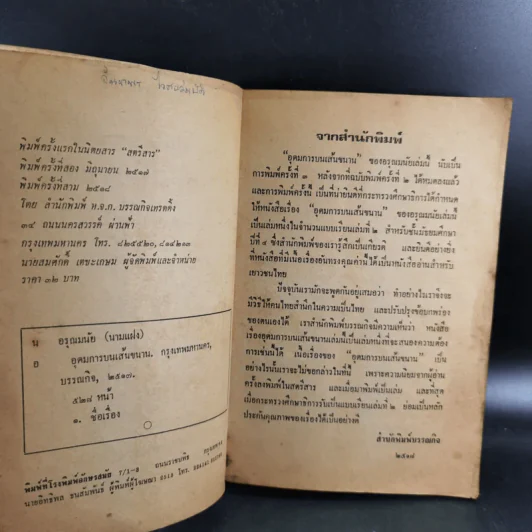 พิมพ์ครั้งแรกในนิตยสาร "สตรีสาร"
พิมพ์ครั้งที่สอง มิถุนายน ๒๕๑๗
พิมพ์ครั้งที่สาม ๒๕๑๘
โดย สำนักพิมพ์ ห.จ.ก. บรรณกิจเทรดดิ้ง
๓๔ ถนนนครสวรรค์ ผ่านฟ้า
กรุงเทพมหานคร โทร.
นายสมศักดิ์ เตชะเกษม ผู้จัดพิมพ์และจำหน่าย
ราคา ๓๒ บาท
น อรุณมนัย (นามแฝง)
อ อุดมการบนเส้นขนาน. กรุงเทพมหานคร,
บรรณกิจ, ๒๕๑๗.
๕๒๘ หน้า
๑. ชื่อเรื่อง
พิมพ์ที่โรงพิมพ์อักษรสมัย
จากสำนักพิมพ์
"อุดมการบนเส้นขนาน" ของอรุณมนัยเล่มนี้ นับเป็น
การพิมพ์ครั้งที่ ๓ หลังจากที่ฉบับพิมพ์ครั้งที่ ๒ ได้หมดลงแล้ว
และการพิมพ์ครั้งนี้ เป็นที่น่ายินดีที่กระทรวงศึกษาธิการได้กำหนด
ให้หนังสือเรื่อง "อุดมการบนเส้นขนาน" ของอรุณมนัยเล่มนี้
เป็นเล่มหนึ่งในจำนวนแบบเรียนเล่มที่ ๒ สำหรับชั้นมัธยมศึกษา
ปีที่ ๔ ซึ่งสำนักพิมพ์ของเรารู้สึกเป็นเกียรติ และยินดีอย่างยิ่ง
ที่หนังสือที่มีเนื้อเรื่องอันทรงคุณค่านี้ได้เป็นหนังสืออ่านสำหรับ
เยาวชนไทย
ปัจจุบันเรามักจะพูดกันอยู่เสมอว่า ทำอย่างไรเราจึงจะ
มีวิธีให้คนไทยสำนึกในความเป็นไทย และปรับปรุงข้อบกพร่อง
ของตนเองได้ เราสำนักพิมพ์บรรณกิจมีความเห็นว่า หนังสือ
เรื่องอุดมการบนเส้นขนานเล่มนี้เป็นเล่มหนึ่งที่จะสนองความต้อง
การเช่นนี้ได้ เนื้อเรื่องของ "อุดมการบนเส้นขนาน" เป็น
อย่างไรนั้นเราจะไม่ขอกล่าวในที่นี้ เพราะความนิยมจากผู้อ่าน
ครั้งลงพิมพ์ในสตรีสาร และเมื่อมาพิมพ์เป็นเล่ม และที่สุด
เมื่อกระทรวงศึกษาธิการรับเป็นแบบเรียนเล่มที่ ๒ ย่อมเป็นหลัก
ประกันคุณภาพของเรื่องได้เป็นอย่างดี
สำนักพิมพ์บรรณกิจ
๒๕๑๘